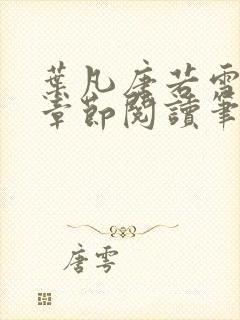 葉凡唐若雪
章節閱讀筆
唐雲